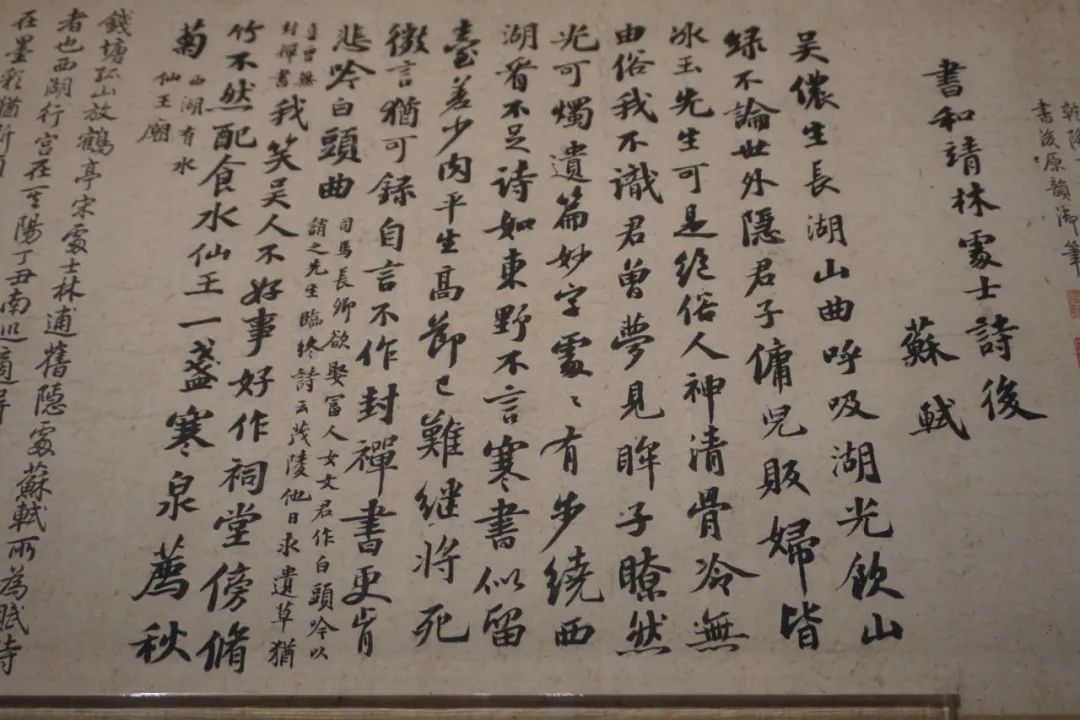 書後原韻御筆
書和靖林處士詩後
蘇軾
吳儂生長湖山曲呼吸湖光飲山
緑不論世外隱君子傭兒販婦皆
冰玉先生可是絕俗人神清骨冷無
由俗我不識君曽夢見眸子瞭然
光可燭遺篇妙字處〻有步繞西
湖看不足詩如東野不言寒書似留
臺差少肉平生髙節已難継將死
微言猶可録自言不作封禪書更肯
悲吟白頭曲
司馬長卿欲娶富人女文君作白頭吟以
誚之先生臨終詩云茂陵他日求遺草猶
喜曽無
封禪書
我笑吳人不好事好作祠堂傍脩
竹不然配食水仙王一盞寒泉薦秋
菊
西湖有水
仙王廟
錢塘孤山放鶴亭宋處士林逋舊隱處蘇軾所為賦詩
者也西湖行宮在
丁丑南巡